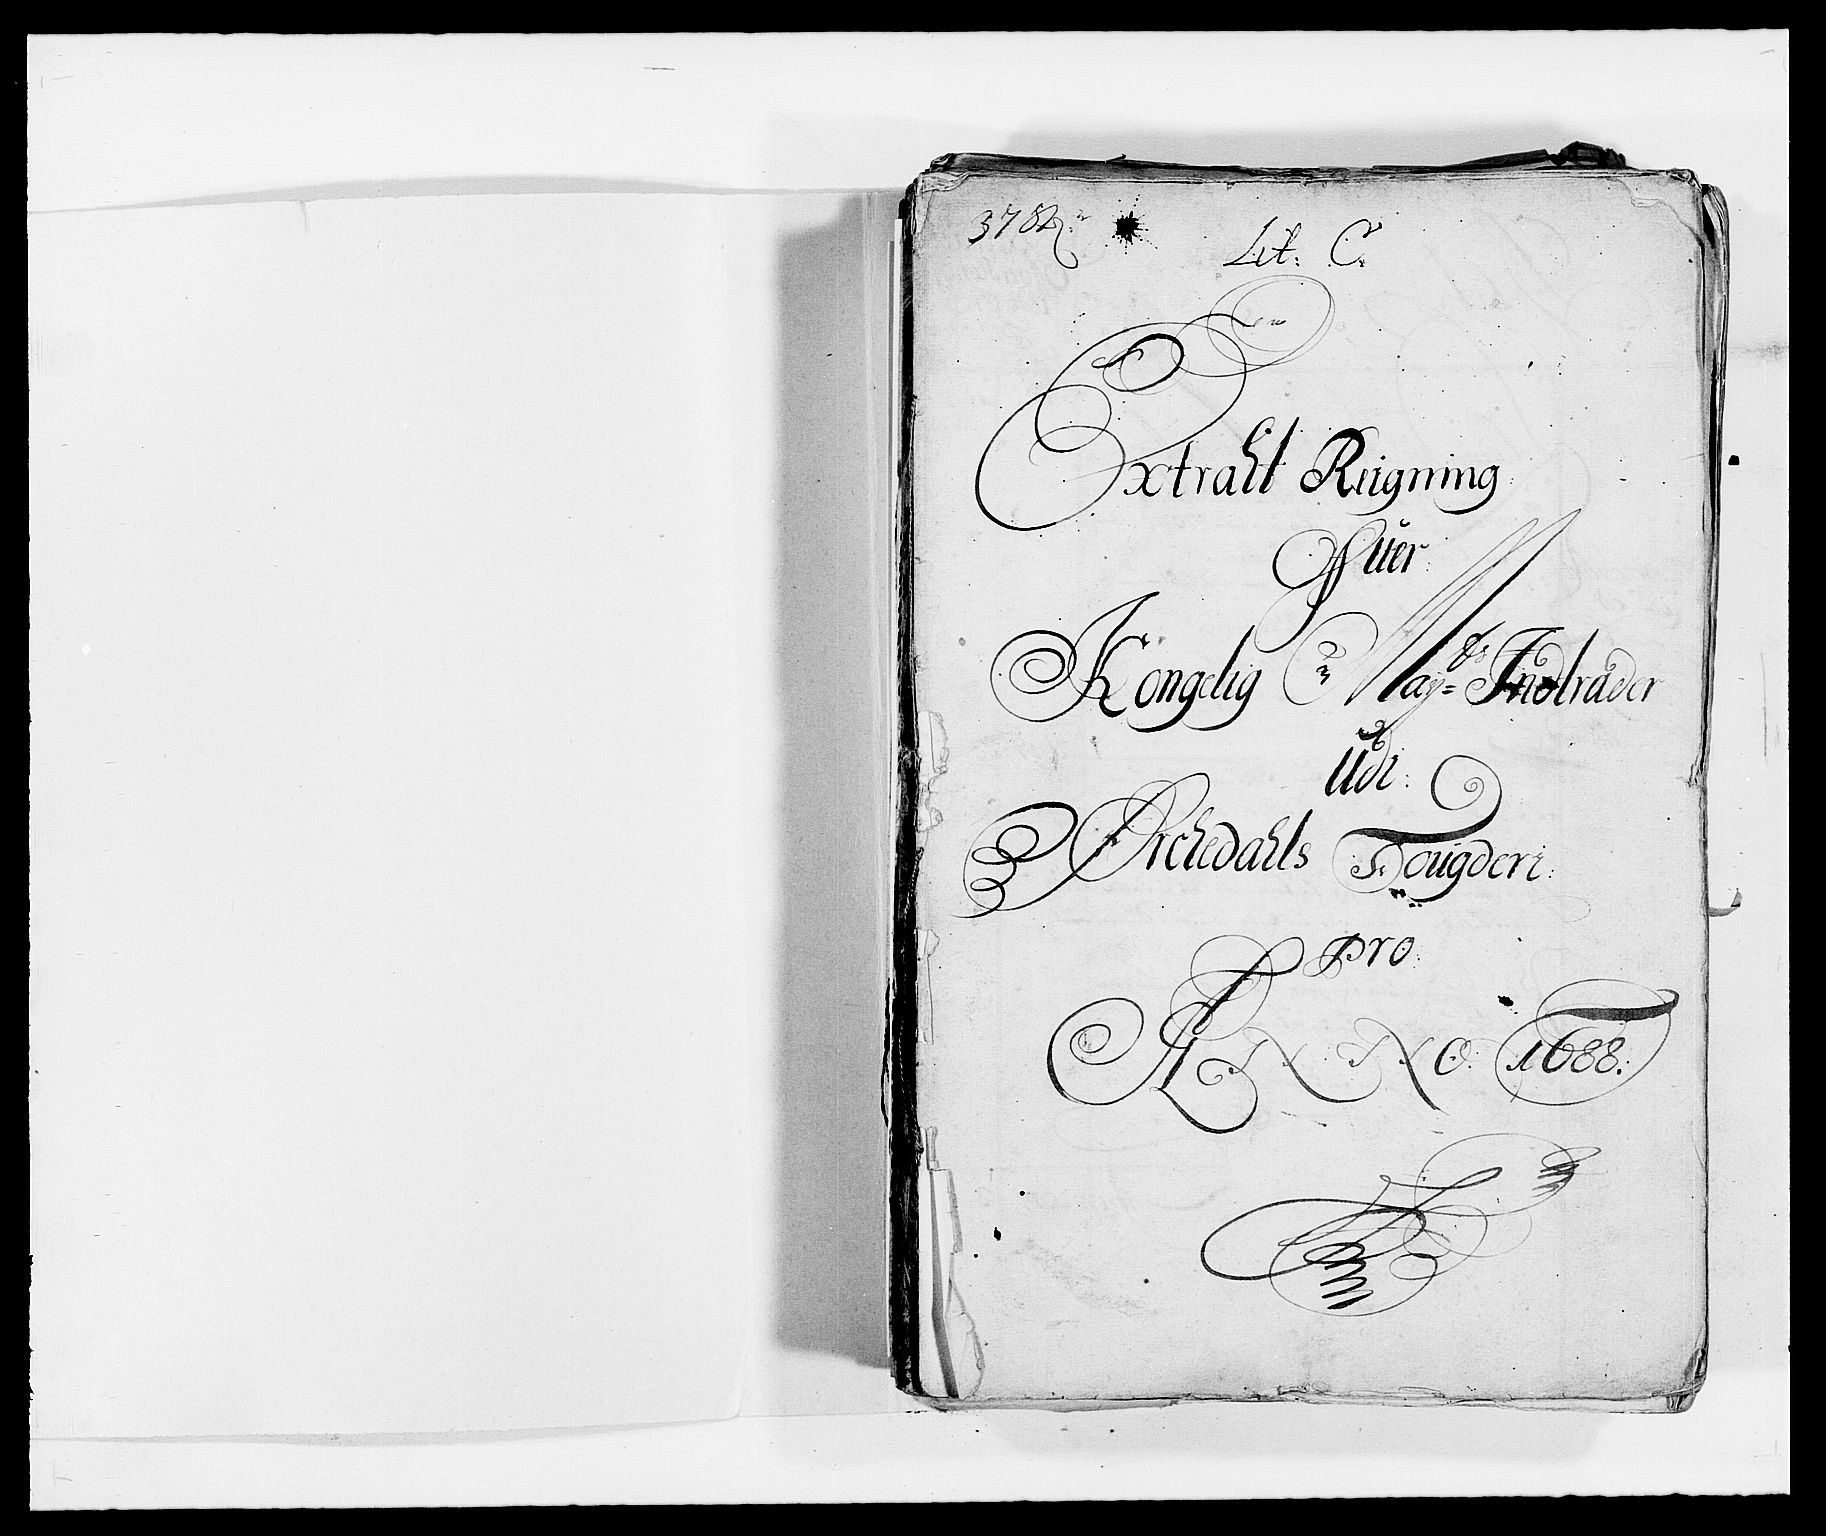 Lit: C.
Extraht Reigning
Ofuer
Kongelig May=ts Indträder
Udi
Orchedahls Fougderi.
pro
ANNO 1688.